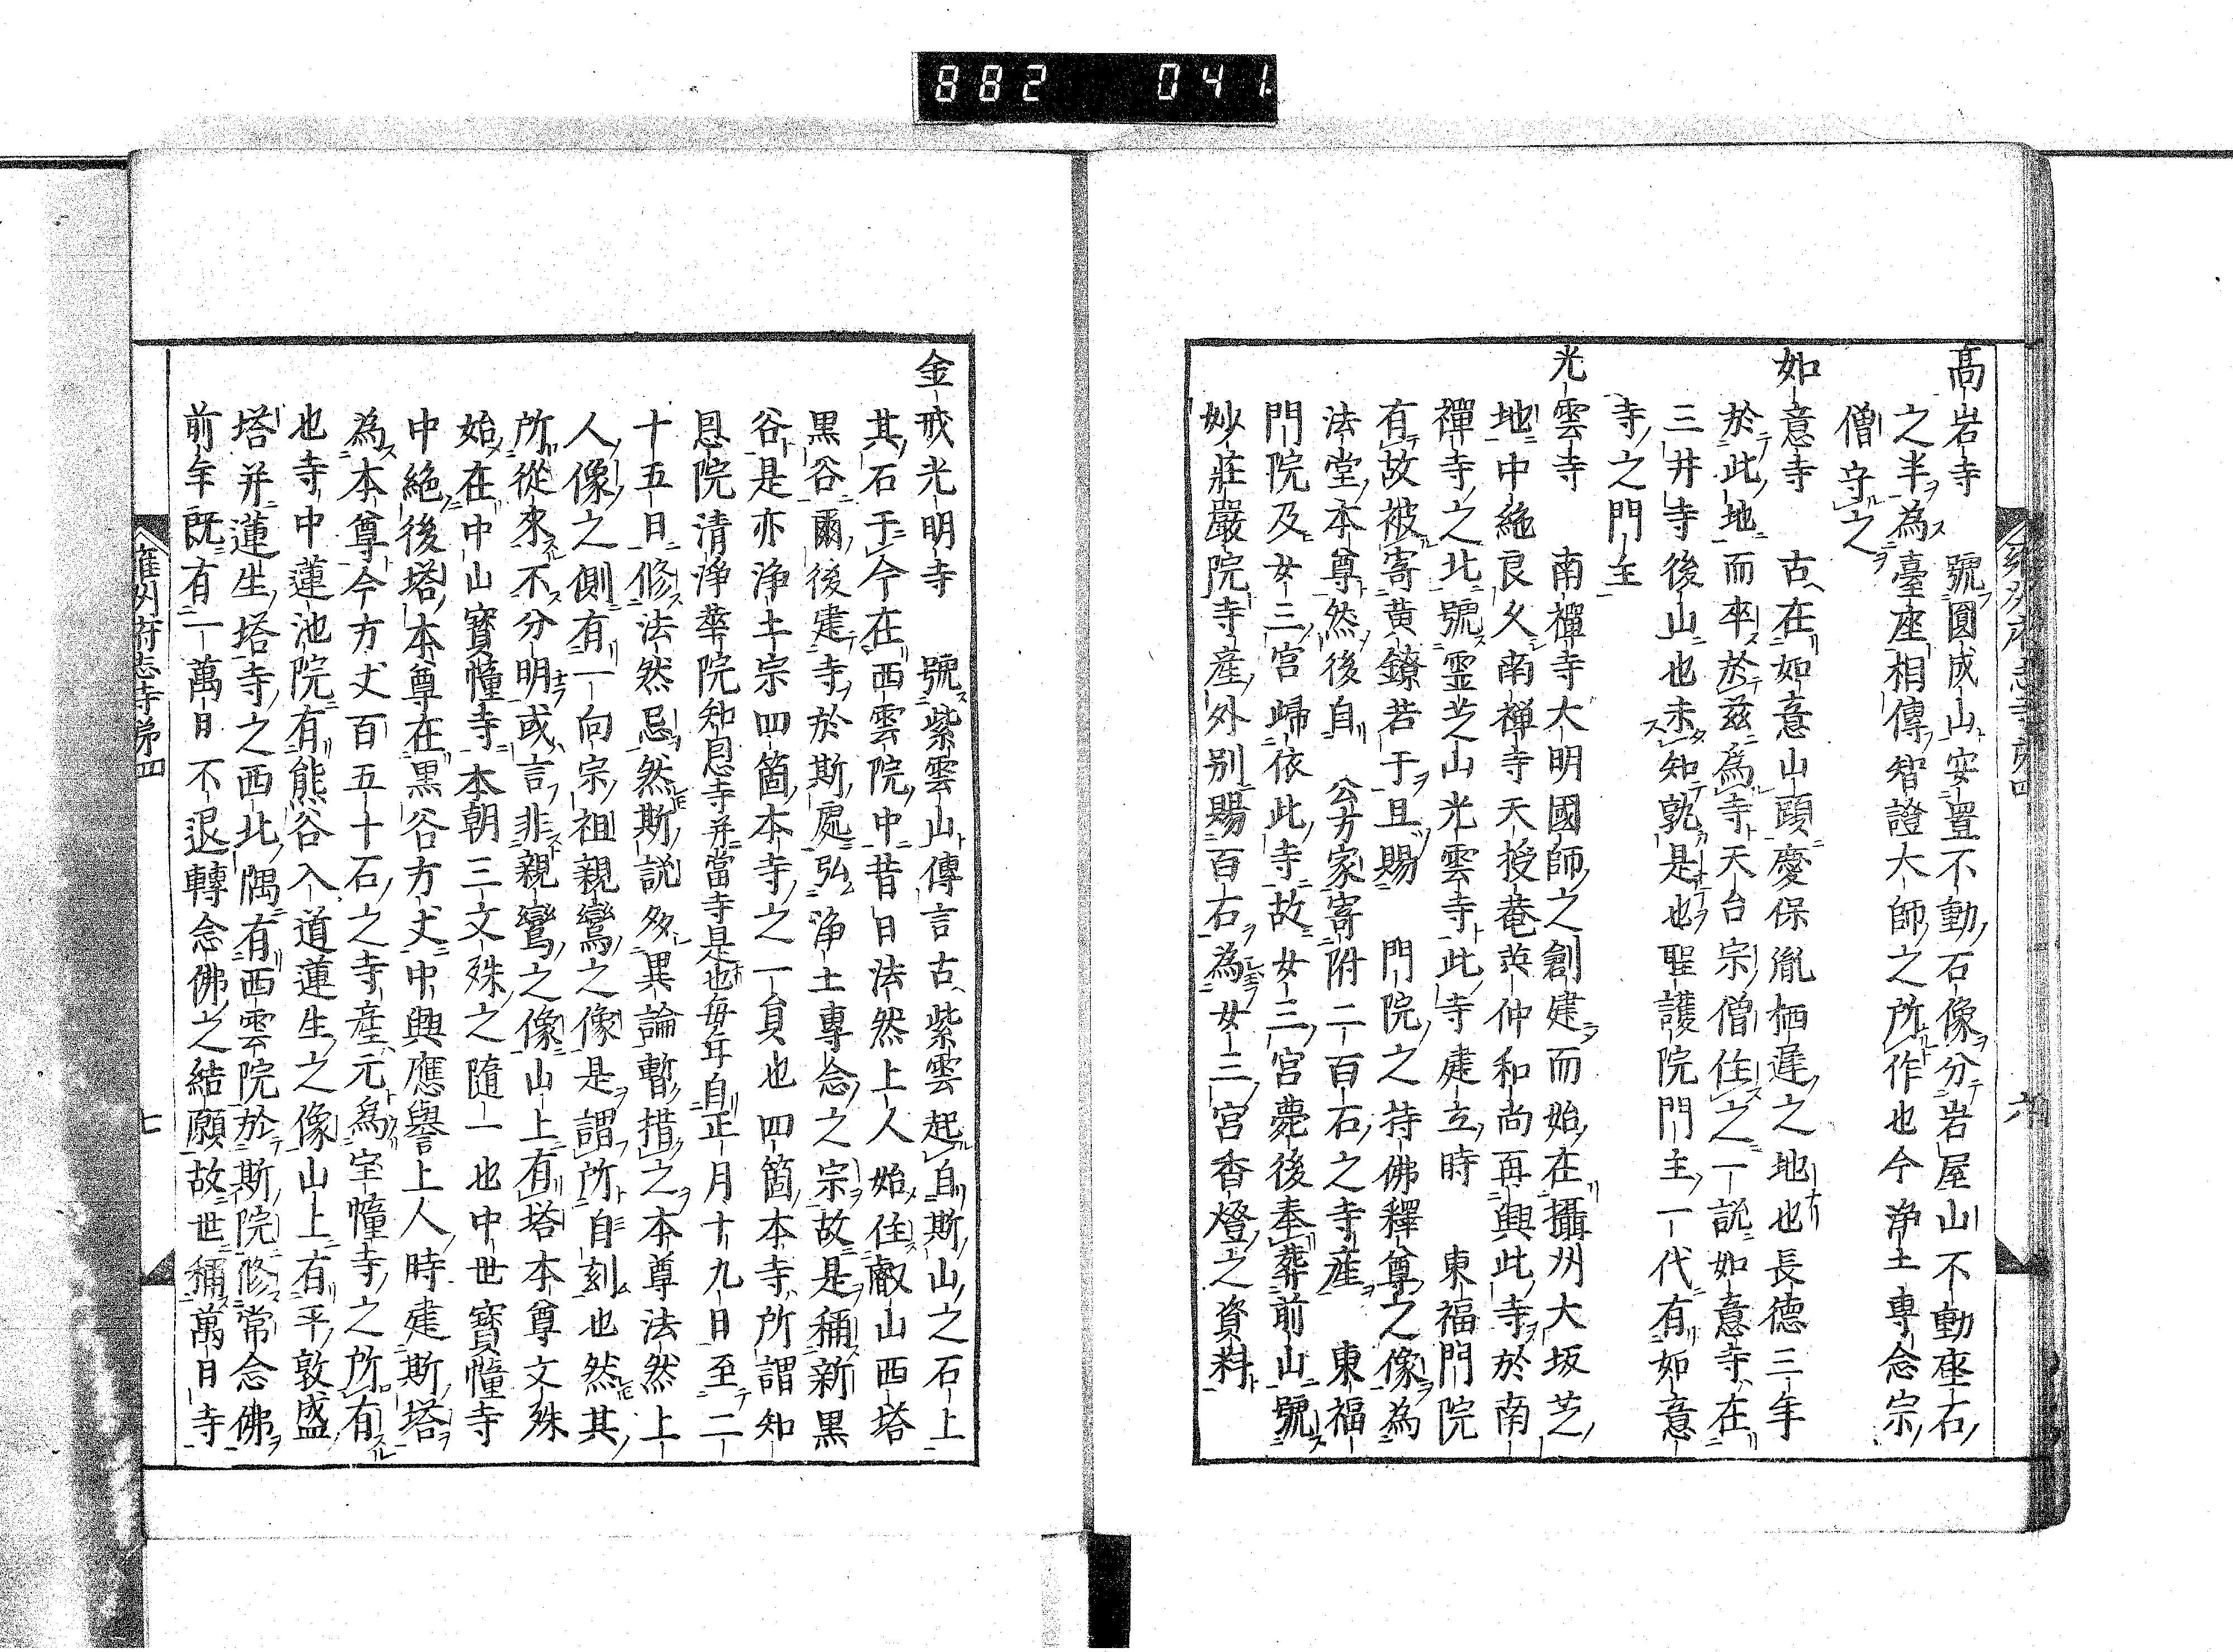 882 041
雍州府志寺第四 六
高岩寺 號圓成山安置不動石像分岩屋山不動座石
之半為臺座相傳智證大師之所作也今淨土專念宗
僧守之
如意寺 古在如意山頭慶保胤栖遲之地也長德三年
於此地而卒於茲為寺天台宗僧住之一說如意寺在
三井寺後山也未知孰是也聖護院門主一代有如意
寺之門主
光雲寺 南禪寺大明國師之創建而始在攝州大坂芝
地中絶良久南禅寺天授菴英仲和尚再興此寺於南
禪寺之北號霊芝山光雲寺此寺建立時 東福門院
有故被寄黄鐐若干且賜 門院之持佛釋尊之像為
法堂本尊然後自 公方家寄附二百石之寺產 東福
門院及女三宮歸依此寺故女三宮薨後奉葬前山號
妙莊嚴院寺產外別賜百石為女三宮香燈之資料
金戒光明寺 號紫雲山傳言古紫雲起自斯山之石上
其石于今在西雲院中昔日法然上人始住叡山西塔
黒谷爾後建寺於斯處弘淨土專念之宗故是稱新黒
谷是亦淨土宗四箇本寺之一員也四箇本寺所謂知
恩院清淨華院知恩寺并當寺是也每年自正月十九日至二
十五日修法然忌然斯說多異論暫措之本尊法然上
人像之側有一向宗祖親鸞之像是謂所自刻也然其
所從來不分明或言非親鸞之像山上有塔本尊文殊
始在中山寶幢寺本朝三文殊之隨一也中世寶幢寺
中絶後塔本尊在黒谷方丈中興應譽上人時建斯塔
為本尊今方丈百五十石之寺產元為宝幢寺之所有
也寺中蓮池院有熊谷入道蓮生之像山上有平敦盛
塔并蓮生塔寺之西北隅有西雲院於斯院修常念佛
前年既有一萬日不退轉念佛之結願故世稱萬日寺
雍州府志寺第四 七